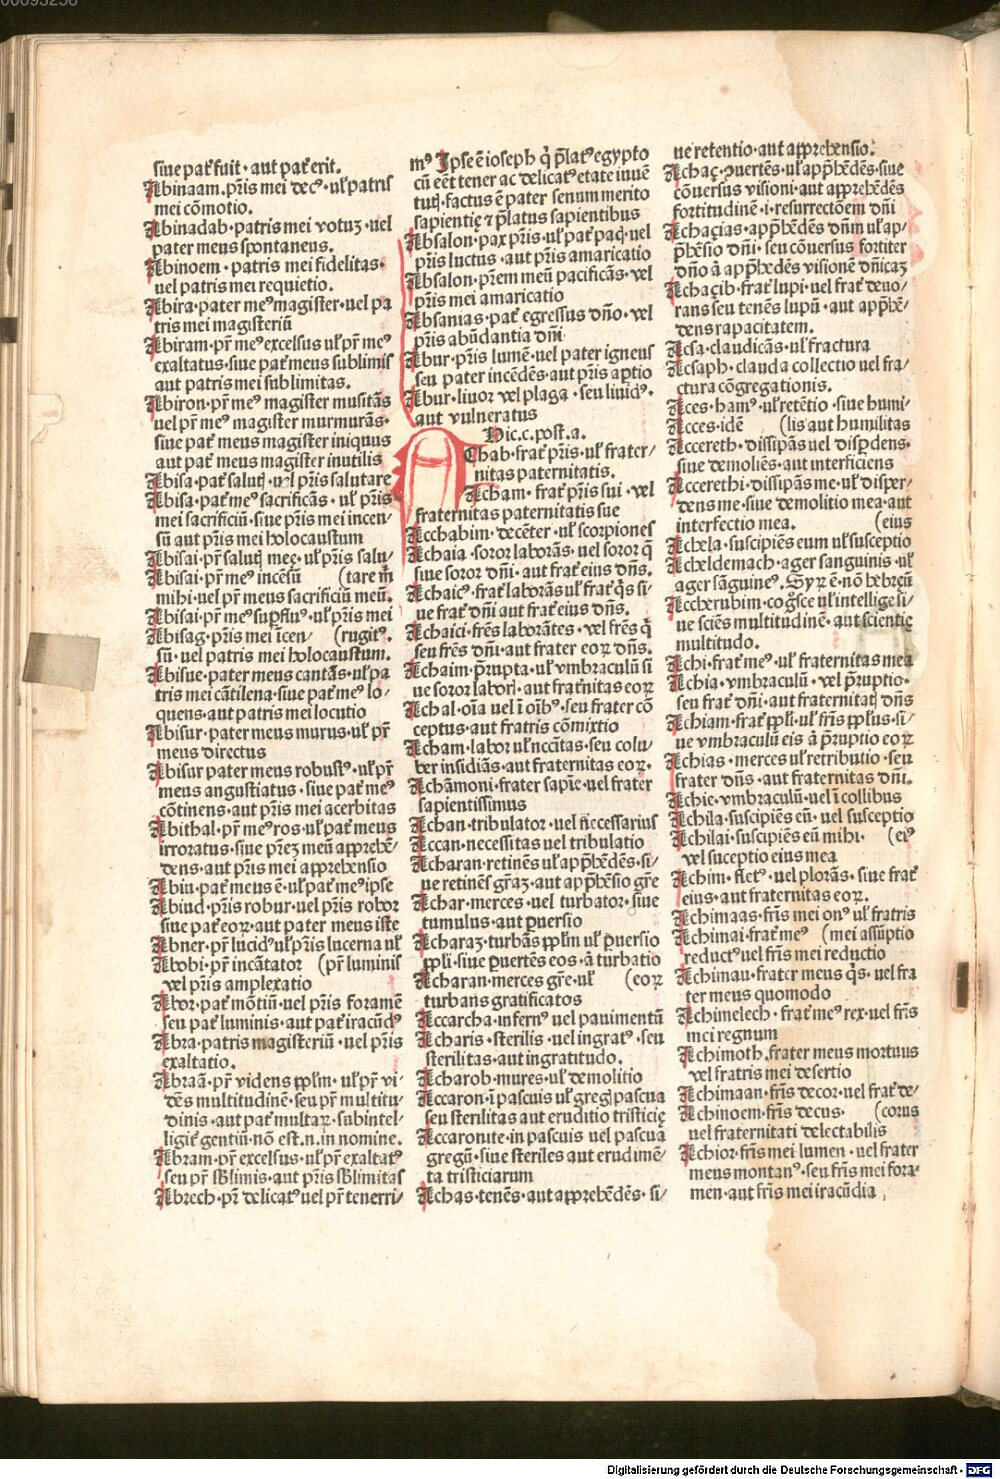 siue pat᷑ fuit · aut pat᷑ erit.
Abinaam · p̄ris mei decꝰ · ul̕ patris
mei cōmotio.
Abinadab · patris mei votuꝫ · uel
pater meus spontaneus.
Abinoem · patris mei fidelitas ·
uel patris mei requietio.
Abira · pater meꝰ magister · uel pa
tris mei magisteriū
Abiram · pr̄ meꝰ excelsus ul̕ pr̄ meꝰ
exaltatus · siue pat᷑ meus sublimis
aut patris mei sublimitas.
Abiron · pr̄ meꝰ magister musitās
uel pr̄ meꝰ magister murmurās ·
siue pat᷑ meus magister iniquus
aut pat᷑ meus magister inutilis
Abisa · pat᷑ saluꝭ · ul̕ p̄ris salutare
Abisa · pat᷑ meꝰ sacrificās · ul̕ p̄ris
mei sacrificiū · siue p̄ris mei incen-
sū aut p̄ris mei holocaustum
Abisai · pr̄ saluꝭ meę · ul̕ p̄ris salu-
Abisai · pr̄ meꝰ incēsū (tare m̄
mihi · uel pr̄ meus sacrificiū meū.
Abisai · pr̄ meꝰ suꝑfluꝰ · ul̕ p̄ris mei
Abisag · p̄ris mei īcen- (rugitꝰ.
sū · uel patris mei holocaustum.
Abisue · pater meus cantās · ul̕ pa
tris mei cātilena · siue pat᷑ meꝰ lo-
quens · aut patris mei locutio
Abisur · pater meus murus · ul̕ pr̄
meus directus
Abisur pater meus robustꝰ · ul̕ pr̄
meus angustiatus · siue pat᷑ meꝰ
cōtinens · aut p̄ris mei acerbitas
Abithal · pr̄ meꝰ ros · ul̕ pat᷑ meus
irroratus · siue p̄reꝫ meū apprehē-
dens · aut p̄ris mei apprehensio
Abiu · pat᷑ meus ē · ul̕ pat᷑ meꝰ ipse
Abiud · p̄ris robur · uel p̄ris robor
siue pat᷑ eoꝝ · aut pater meus iste
Abner · pr̄ lucidꝰ ul̕ p̄ris lucerna ul̕
Abobi · pr̄ incātator (pr̄ luminis
vel p̄ris amplexatio
Abor · pat᷑ mōtiū · uel p̄ris foramē
seu pat᷑ luminis · aut pat᷑ iracūdꝰ
Abra · patris magisteriū · uel p̄ris
exaltatio.
Abraā · pr̄ videns ppl̄m · ul̕ pr̄ vi-
dēs multitudinē · seu pr̄ multitu-
dinis · aut pat᷑ multaꝝ · subintel-
ligit᷑ gentiū · nō est · n · in nomine.
Abram · pr̄ excelsus · ul̕ pr̄ exaltatꝰ
seu pr̄ sb̄limis · aut p̄ris sb̄limitas
Abrech · pr̄ delicatꝰ uel pr̄ tenerri-
mꝰ Ipse ē ioseph q̇ p̄latꝰ egypto
cū eēt tener ac delicatꝰ etate iuuē
tuꝭ · factus ē pater senum merito
sapientię ⁊ p̄latus sapientibus
Absalon · pax p̄ris · ul̕ pat᷑ paꝭ · uel
p̄ris luctus · aut p̄ris amaricatio
Absalon · p̄rem meū pacificās · vel
p̄ris mei amaricatio
Absanias · pat᷑ egressus dn̄o · vel
p̄ris abūdantia dn̄i
Abur · p̄ris lumē · uel pater igneus
seu pater incēdēs · aut p̄ris aꝑtio
Abur · liuor vel plaga · seu liuidꝰ.
aut vulneratus
Hic .c. post .a.
Chab · frat᷑ p̄ris · ul̕ frater-
nitas paternitatis.
Acham · frat᷑ p̄ris sui · vel
fraternitas paternitatis sue
Acchabim · decēter · ul̕ scorpiones
Achaia · soror laborās · uel soror q̄
siue soror dn̄i · aut frat᷑ eius dn̄s.
Achaicꝰ · frat᷑ laborās ul̕ frat᷑ q̇s si-
ue frat᷑ dn̄i aut frat᷑ eius dn̄s.
Achaici · fr̄es laborātes · vel fr̄es q̇
seu fr̄es dn̄i · aut frater eoꝝ dn̄s.
Achaim · p̄rupta · ul̕ vmbraculū si
ue soror labori · aut frat᷑nitas eoꝝ
Achal · oīa uel ī oībꝰ · seu frater cō
ceptus · aut fratris cōmixtio
Acham · labor ul̕ nccītas · seu colu-
ber insidiās · aut fraternitas eoꝝ.
Achāmoni · frater sapīe · vel frater
sapientissimus
Achan · tribulator · vel necessarius
Accan · necessitas uel tribulatio
Acharan · retinēs ul̕ app̄hēdēs · si-
ue retinēs gr̄aꝫ · aut app̄hēsio gr̄e
Achar · merces · vel turbator · siue
tumulus · aut ꝑuersio
Acharaꝫ · turbās ppl̄m ul̕ ꝑuersio
ppl̄i · siue ꝑuertēs eos · ā turbatio
Acharan · merces gr̄e · ul̕ (eoꝝ
turbans gratificatos
Accarcha · infernꝰ uel pauimentū
Acharis · sterilis · uel ingratꝰ · seu
sterilitas · aut ingratitudo.
Acharob · mures · ul̕ demolitio
Accaron · ī pascuis ul̕ gregꝭ pascua
seu sterilitas aut eruditio tristicię
Accaronite · in pascuis uel pascua
gregū · siue steriles aut erudimē-
ta tristiciarum
Achas · tenēs · aut apprehēdēs · si-
ue retentio · aut apprehensio.
Achaꝫ · ꝯuertēs · ul̕ app̄hēdēs · siue
cōuersus visioni · aut apprehēdēs
fortitudinē · i · resurrectōem dn̄i
Achaꝫias · app̄hēdēs dn̄m ul̕ ap-
p̄hēsio dn̄i · seu cōuersus fortiter
dn̄o ā app̄hēdēs visionē dn̄icaꝫ
Achaꝫib · frat᷑ lupi · uel frat᷑ deuo-
rans seu tenēs lupū · aut app̄hē-
dens rapacitatem.
Acsa · claudicās · ul̕ fractura
Acsaph · clauda collectio uel fra-
ctura cōgregationis.
Acces · hamꝰ · ul̕ retētio · siue humi-
Acces · idē (lis aut humilitas
Accereth · dissipās uel disꝑdens ·
siue demoliēs · aut interficiens
Accerethi · dissipās me · ul̕ disper-
dens me · siue demolitio mea · aut
interfectio mea. (eius
Achela · suscipiēs eum ul̕ susceptio
Acheldemach · ager sanguinis · ul̕
ager sāguineꝰ. Syꝝ ē · nō hebręū
Accherubim · cogn̄sce ul̕ intellige si-
ue sciēs multitudinē · aut scientię
multitudo.
Achi · frat᷑ meꝰ · ul̕ fraternitas mea
Achia · vmbraculū · vel p̄ruptio ·
seu frat᷑ dn̄i · aut fraternitaꝭ dn̄s
Achiam · frat᷑ ppl̄i · ul̕ fr̄is ppl̄us · si-
ue vmbraculū eis ā p̄ruptio eoꝝ
Achias · merces ul̕ retributio · seu
frater dn̄s · aut fraternitas dn̄i.
Achie · vmbraculū · uel ī collibus
Achila · suscipiēs eū · uel susceptio
Achilai · suscipiēs eū mihi · (eiꝰ
vel suceptio eius mea
Achim · fletꝰ · uel plorās · siue frat᷑
eius · aut fraternitas eoꝝ.
Achimaas · fr̄is mei onꝰ ul̕ fratris
Achimai · frat᷑ meꝰ (mei assūptio
reductꝰ uel fr̄is mei reductio
Achiman · frater meus q̇s · uel fra
ter meus quomodo
Achimelech · frat᷑ meꝰ rex · uel fr̄is
mei regnum
Achimoth · frater meus mortuus
vel fratris mei desertio
Achimaan · fr̄is decor · uel frat᷑ de-
Achinoem · fr̄is decus · (corus
uel fraternitati delectabilis
Achior · fr̄is mei lumen · uel frater
meus montanꝰ · seu fr̄is mei fora-
men · aut fr̄is mei iracūdia
Digitalisierung gefördert durch die Deutsche Forschungsgemeinschaft - DFG